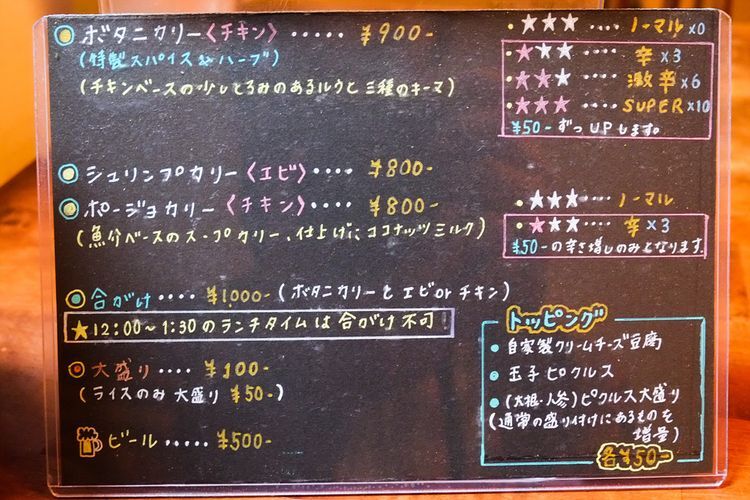 ボタニカリー〈チキン〉・・・・・ ¥900-
(特製スパイス&ハーブ)
(チキンベースの少しとろみのあるルウと三種のキーマ)
・★★★ ・・・・ ノーマル×0
・★★★ ・・・・ 辛×3
・★★★ ・・・・ 激辛×6
・★★★ ・・・・ SUPER×10
¥50-ずつUPします。
シュリンプカリー〈エビ〉・・・・ ¥800-
ポージョカリー〈チキン〉・・・・ ¥800-
(魚介ベースのスープカリー、仕上げにココナッツミルク)
・★★★ ・・・・ ノーマル
・★★★ ・・・・ 辛×3
¥50-の辛さ増しのみとなります。
合がけ・・・・ ¥1,000-(ボタニカリーとエビorチキン)
★12:00~1:30のランチタイムは合がけ不可!
大盛り・・・・ ¥100-
(ライスのみ大盛り ¥50-)
ビール・・・・・ ¥500-
トッピング
・自家製クリームチーズ豆腐
・玉子ピクルス
・(大根・人参)ピクルス大盛り
(通常の盛り付けにあるものを
増量)
各¥50-